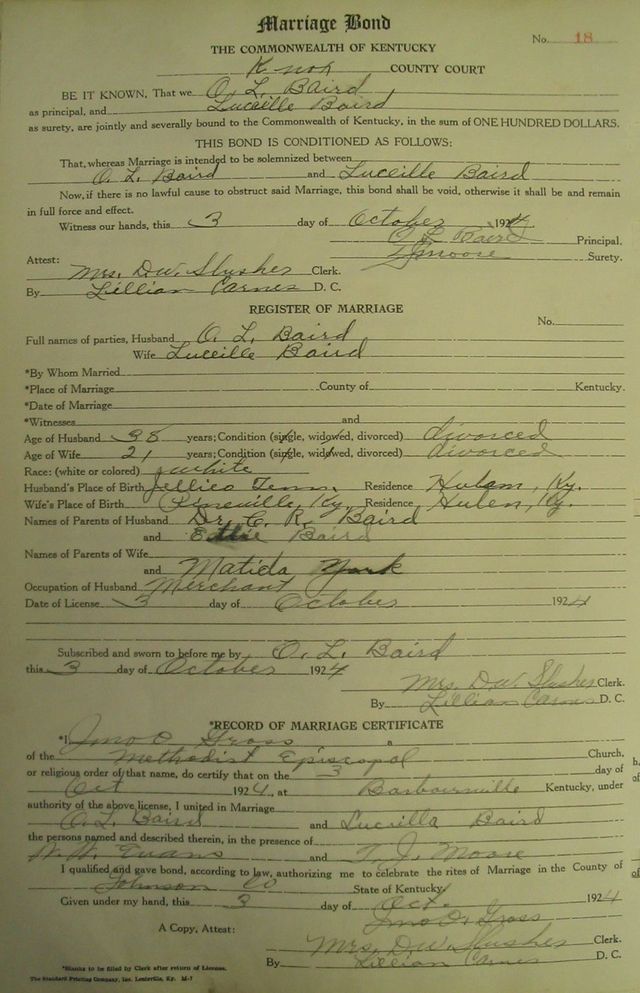 Marriage Bond
No. 18
THE COMMONWEALTH OF KENTUCKY
Knox COUNTY COURT
BE IT KNOWN, That we O. L. Baird
as principal, and Lucille Baird
as surety, are jointly and severally bound to the Commonwealth of Kentucky, in the sum of ONE HUNDRED DOLLARS.
THIS BOND IS CONDITIONED AS FOLLOWS:
That, whereas Marriage is intended to be solemnized between
O. L. Baird and Luceille Baird
Now, if there is no lawful cause to obstruct said Marriage, this bond shall be void, otherwise it shall be and remain
in full force and effect.
Witness our hands, this 3 day of October 1924
O. L. Baird Principal.
Moore Surety.
Attest:
Mrs. D.W. Slusher Clerk.
By Lillian Carnes D. C.
REGISTER OF MARRIAGE
No.
Full names of parties, Husband O. L. Baird
Wife Luceille Baird
*By Whom Married
*Place of Marriage County of Kentucky.
*Date of Marriage
*Witnesses and
Age of Husband 38 years; Condition (single, widowed, divorced) divorced
Age of Wife 21 years; Condition (single, widowed, divorced) divorced
Race: (white or colored) white
Husband's Place of Birth Jellico Tenn. Residence Hulen, Ky.
Wife's Place of Birth Pineville, Ky. Residence Hulen, Ky.
Names of Parents of Husband Dr. C. R. Baird
and Baird
Names of Parents of Wife
and Matida York
Occupation of Husband Merchant
Date of License 3 day of October 1924
Subscribed and sworn to before me by O. L. Baird
this 3 day of October 1924
Mrs. D.W. Slusher Clerk.
By Lillian Carnes D. C.
*RECORD OF MARRIAGE CERTIFICATE
*I, Jno O. Gross a
of the Methodist Episcopal Church,
or religious order of that name, do certify that on the 3 day of
Oct 1924, at Barbourville Kentucky, under
authority of the above license, I united in Marriage
O. L. Baird and Lucrilla Baird
the persons named and described therein, in the presence of
W. W. Evans and T. J. Moore
I qualified and gave bond, according to law, authorizing me to celebrate the rites of Marriage in the County of
Johnson Co State of Kentucky.
Given under my hand, this 3 day of Oct. 1924
Jno O. Gross
A Copy, Attest:
Mrs. D.W. Slusher Clerk.
By Lillian Carnes D. C.
*Blanks to be filled by Clerk after return of License.
The Standard Printing Company, Inc. Louisville, Ky. M-7